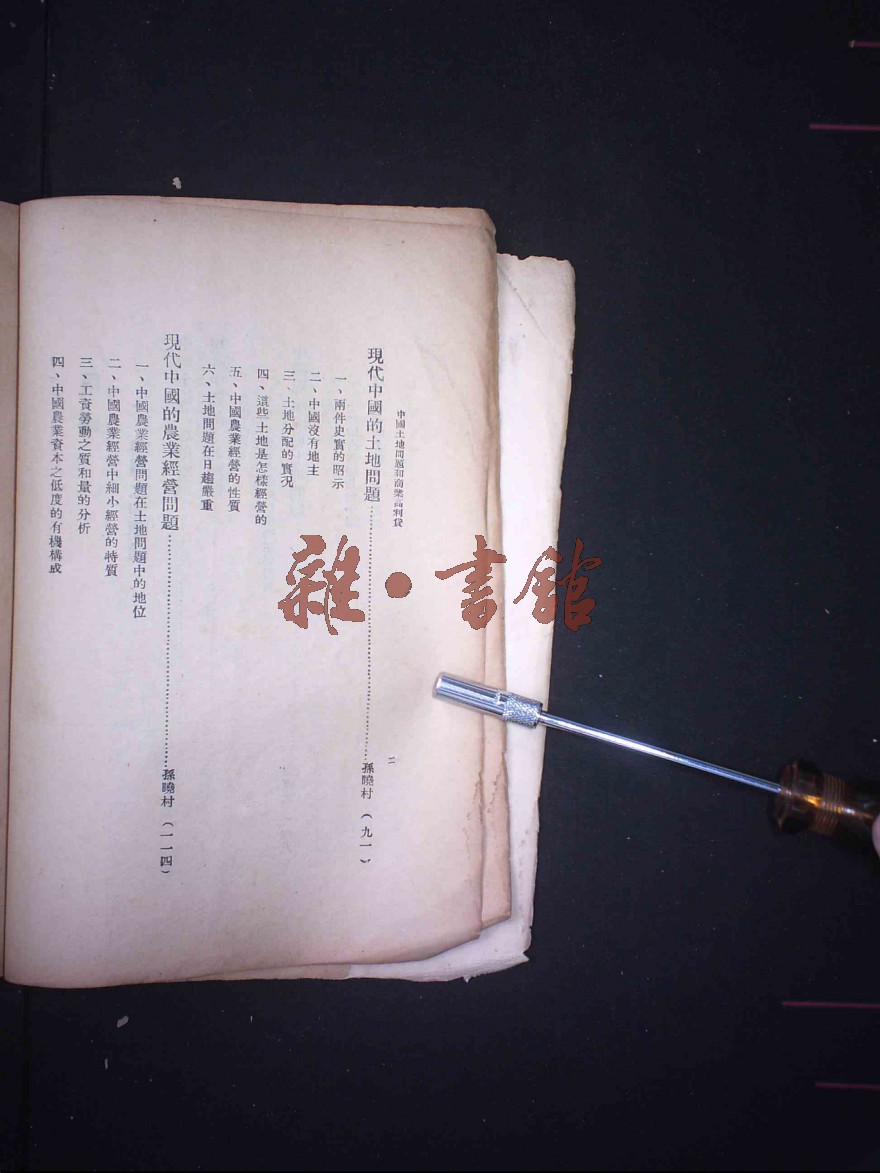 中國土地問題和商業高利貸
二
現代中國的土地問題……孫曉村（九一）
一、兩件史實的昭示
二、中國沒有地主
三、土地分配的實况
四、這些土地是怎樣經營的
五、中國農業經營的性質
六、土地問題在日趨嚴重
現代中國的農業經營問題……孫曉村（一一四）
一、中國農業經營問題在土地問題中的地位
二、中國農業經營中細小經營的特質
三、工資勞動之質和量的分析
四、中國農業資本之低度的有機構成
雜·書館